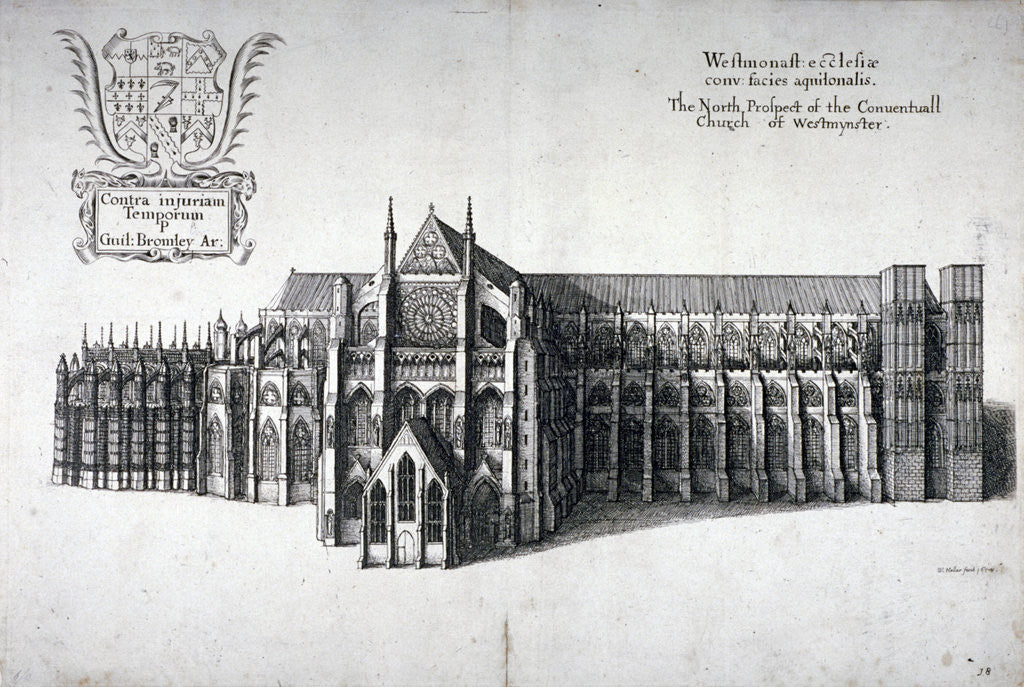 Westmonast: ecclesiæ
conv: facies aquilonalis.
The North Prospect of the Conventuall
Church of Westmynster.
Contra injuriam
Temporum
P
Guil: Bromley Ar:
W. Hollar fecit
18